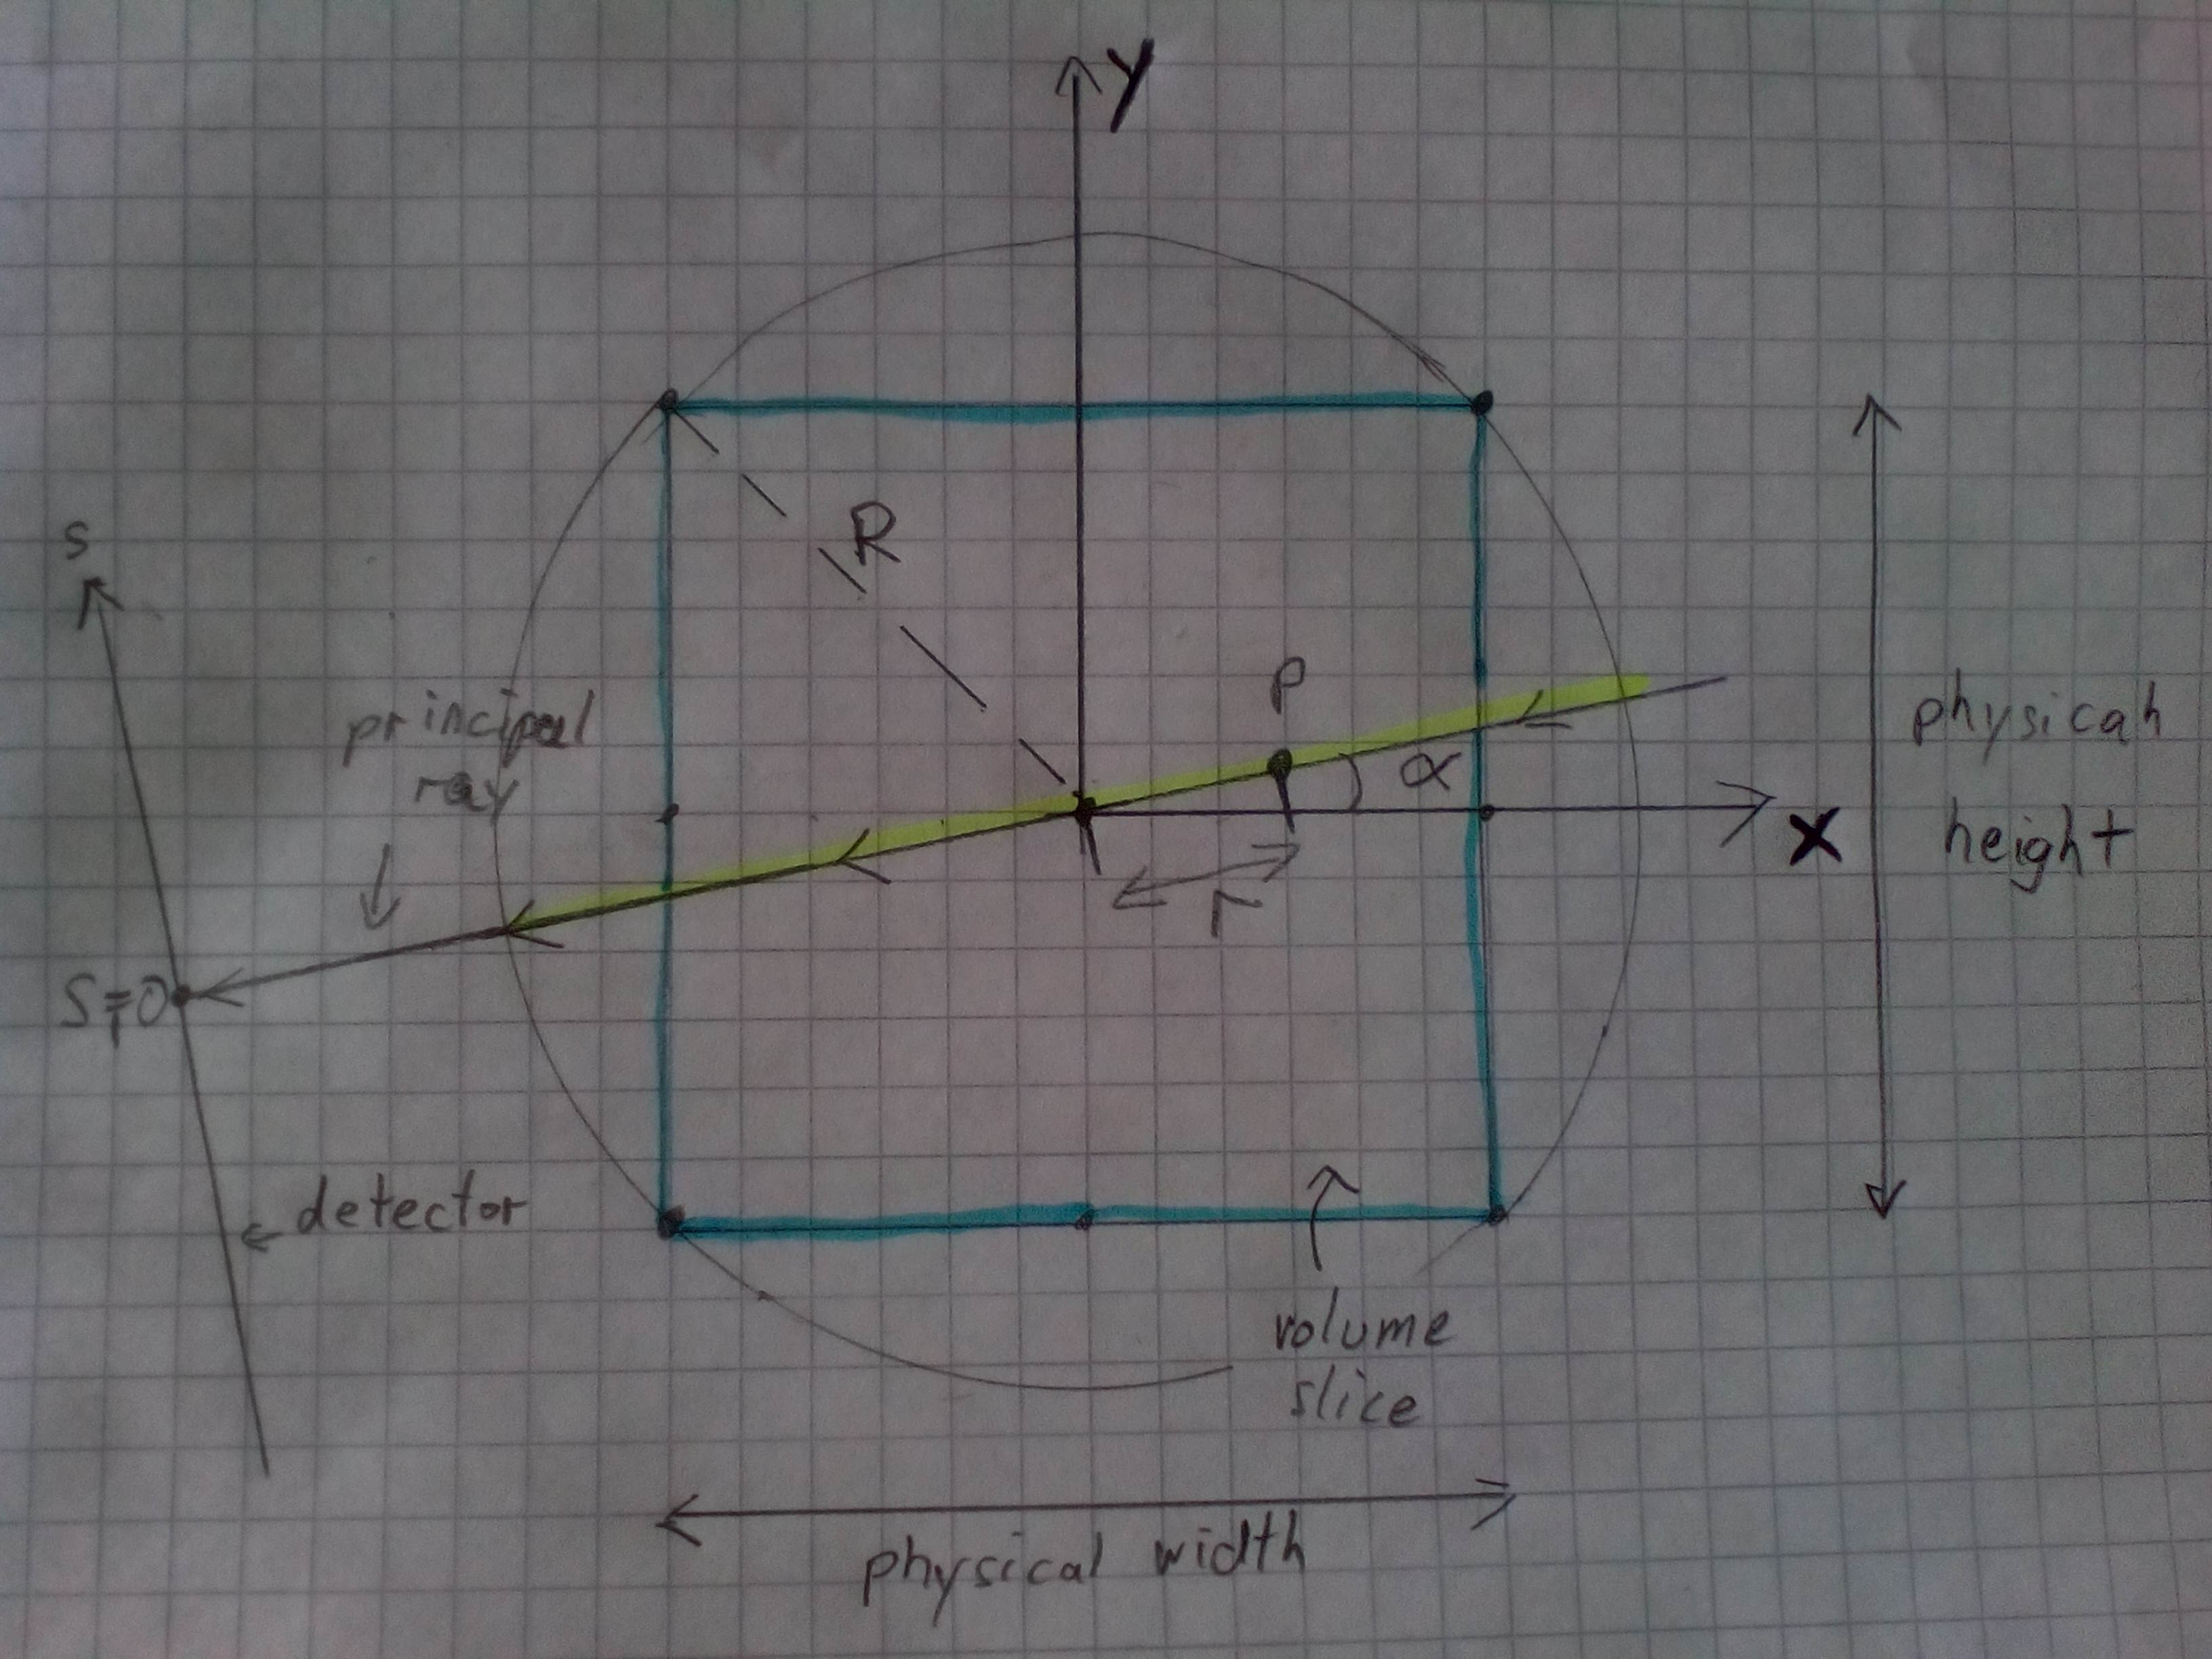 y
R
s
P
principal
ray
α
x
physicah
height
r
S=0
detector
volume
slice
physical width